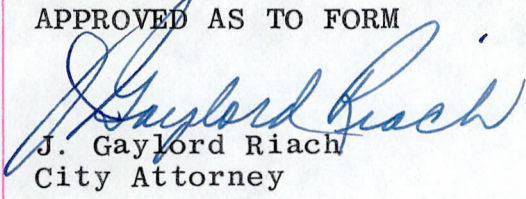 APPROVED AS TO FORM
J Gaylord Riach
J. Gaylord Riach
City Attorney